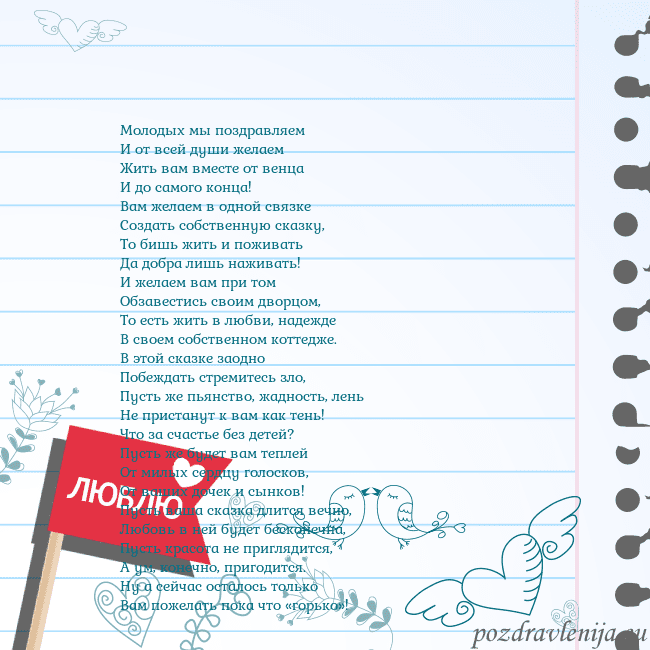 Молодых мы поздравляем
И от всей души желаем
Жить вам вместе от венца
И до самого конца!
Вам желаем в одной связке
Создать собственную сказку,
То бишь жить и поживать
Да добра лишь наживать!
И желаем вам при том
Обзавестись своим дворцом,
То есть жить в любви, надежде
В своем собственном коттедже.
В этой сказке заодно
Побеждать стремитесь зло,
Пусть же пьянство, жадность, лень
Не пристанут к вам как тень!
Что за счастье без детей?
Пусть же будет вам теплей
От милых сердцу голосков,
От ваших дочек и сынков!
Пусть ваша сказка длится вечно,
Любовь в ней будет бесконечна,
Пусть красота не приглядится,
А ум, конечно, пригодится.
Ну а сейчас осталось только
Вам пожелать пока что «горько»!
ЛЮБЛЮ
pozdravlenija.eu